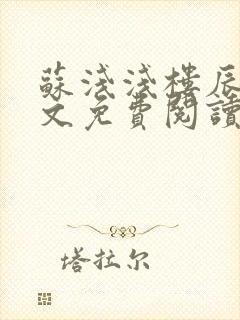 蘇淺淺樓辰
文免費閱讀
塔拉尔